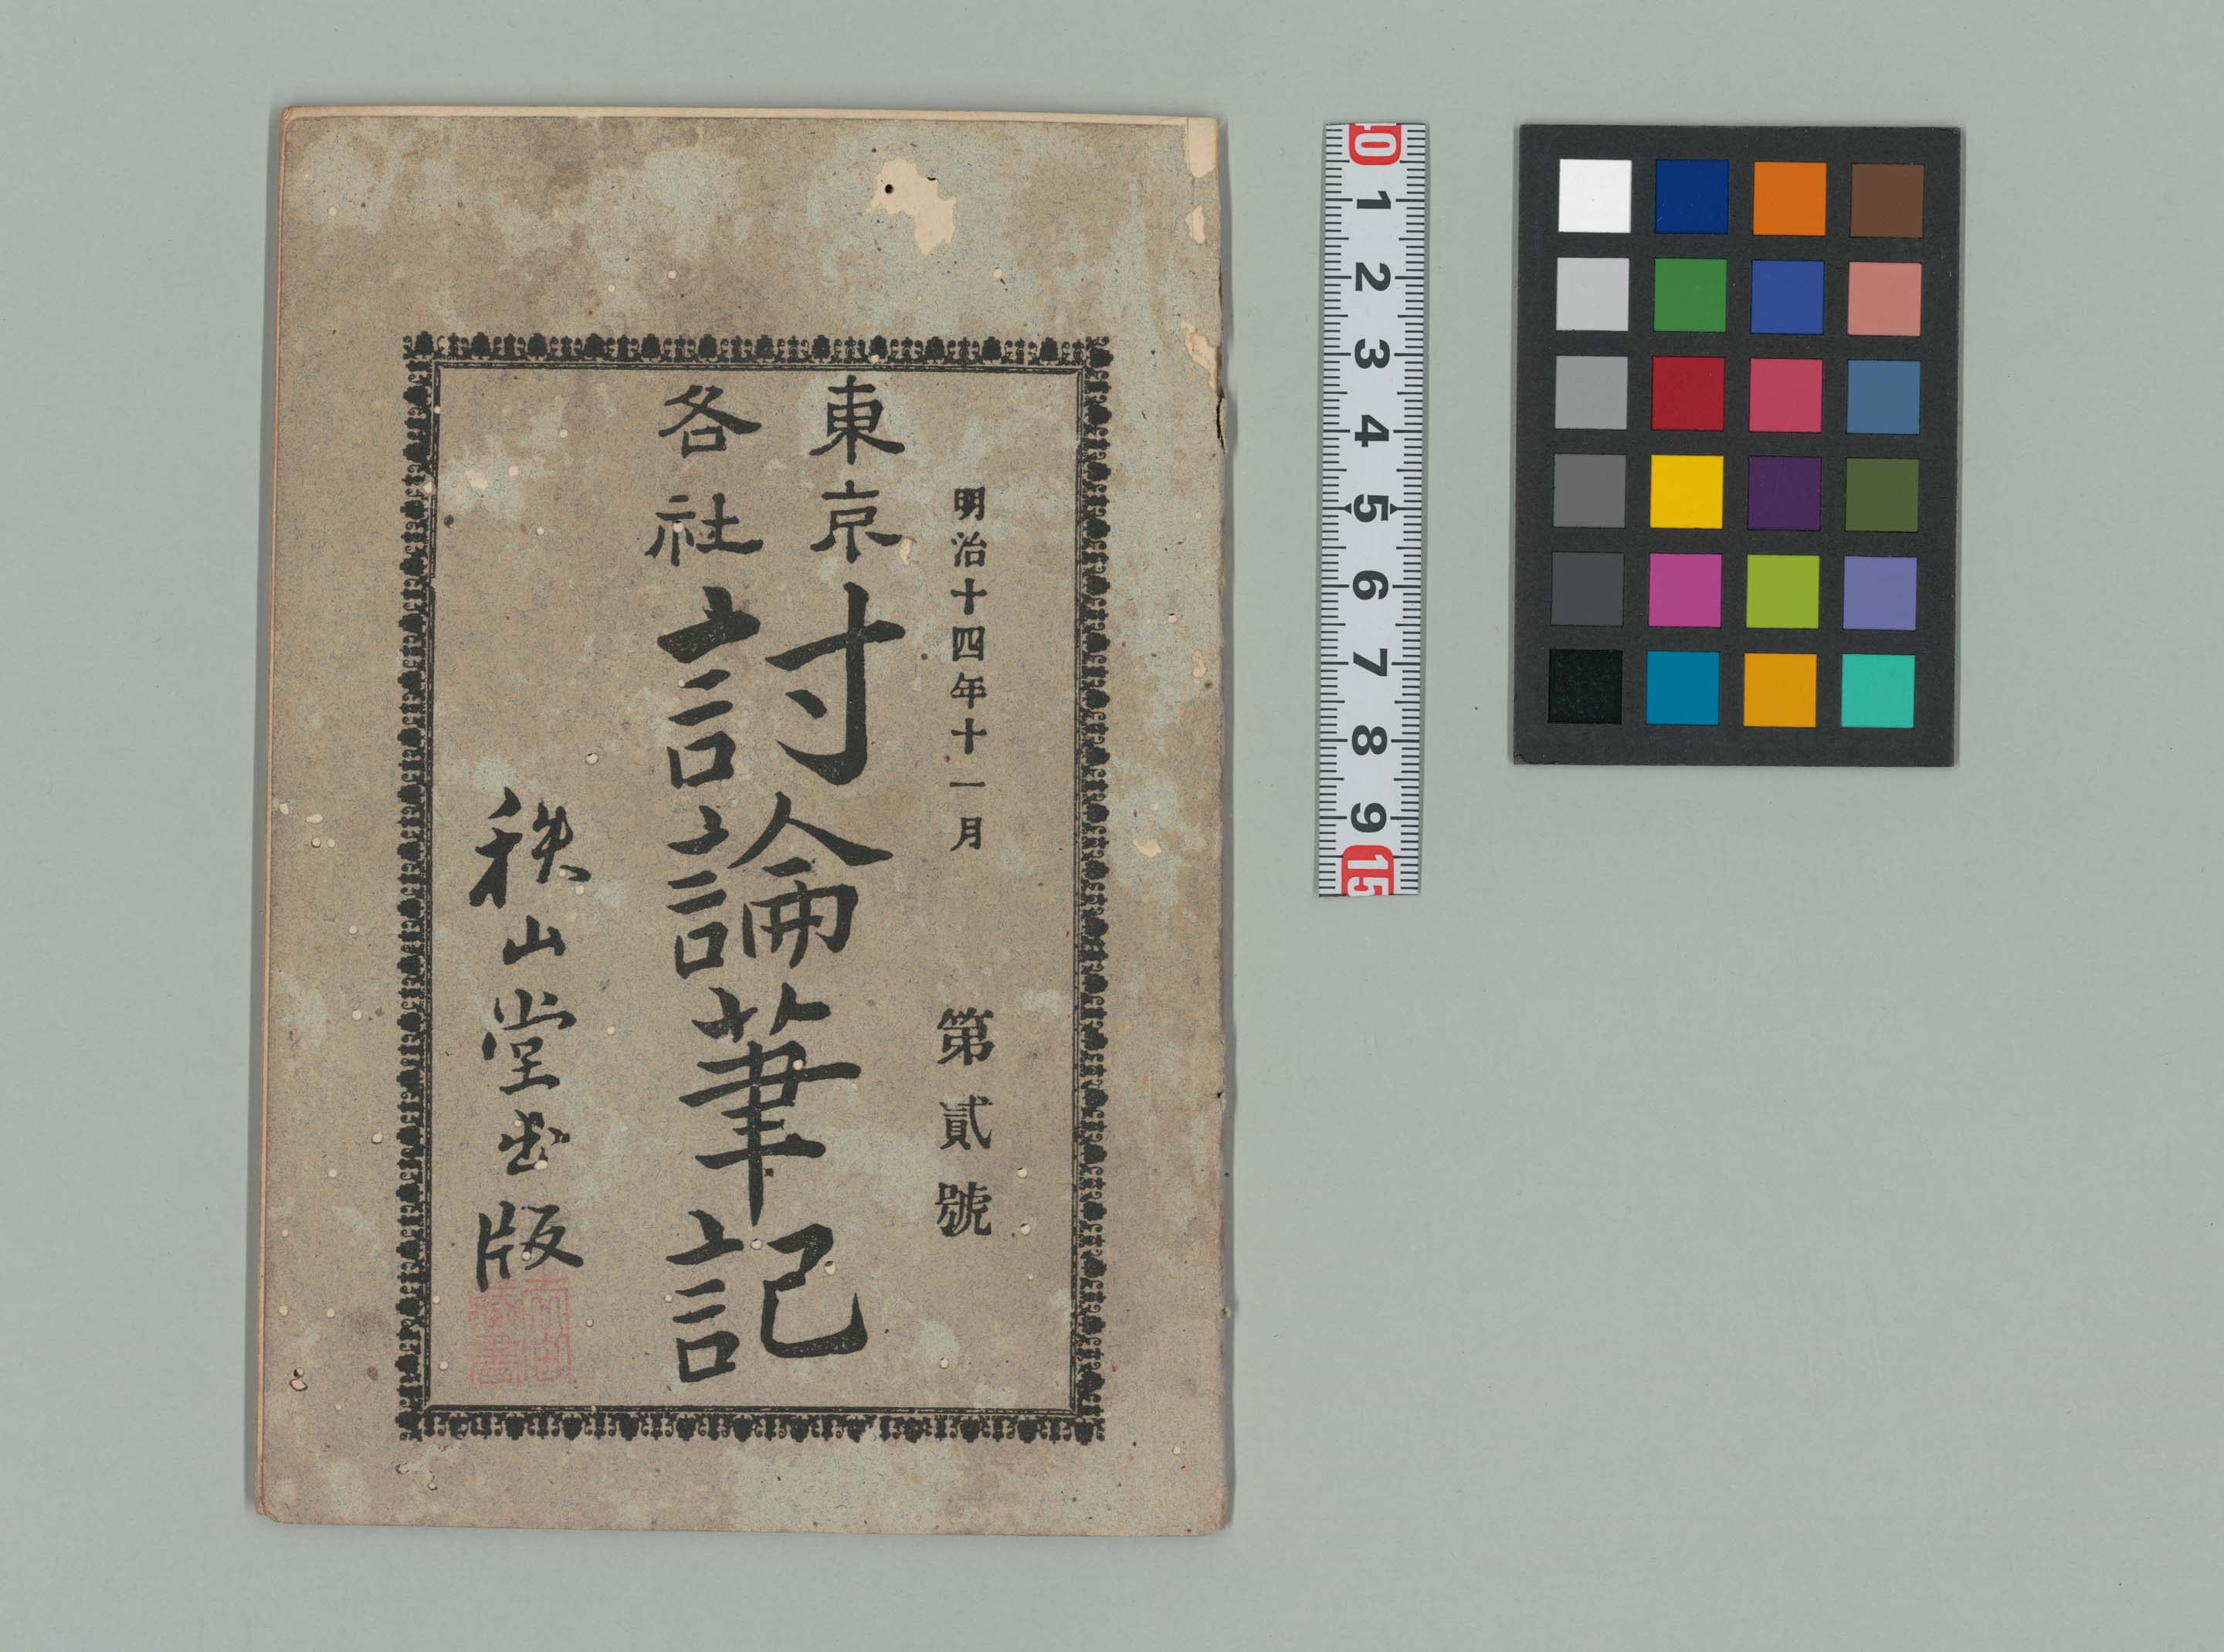 明治十四年十一月 第貳號
東京
各社
討論筆記
秩山堂出版
0 1 2 3 4 5 6 7 8 9 15